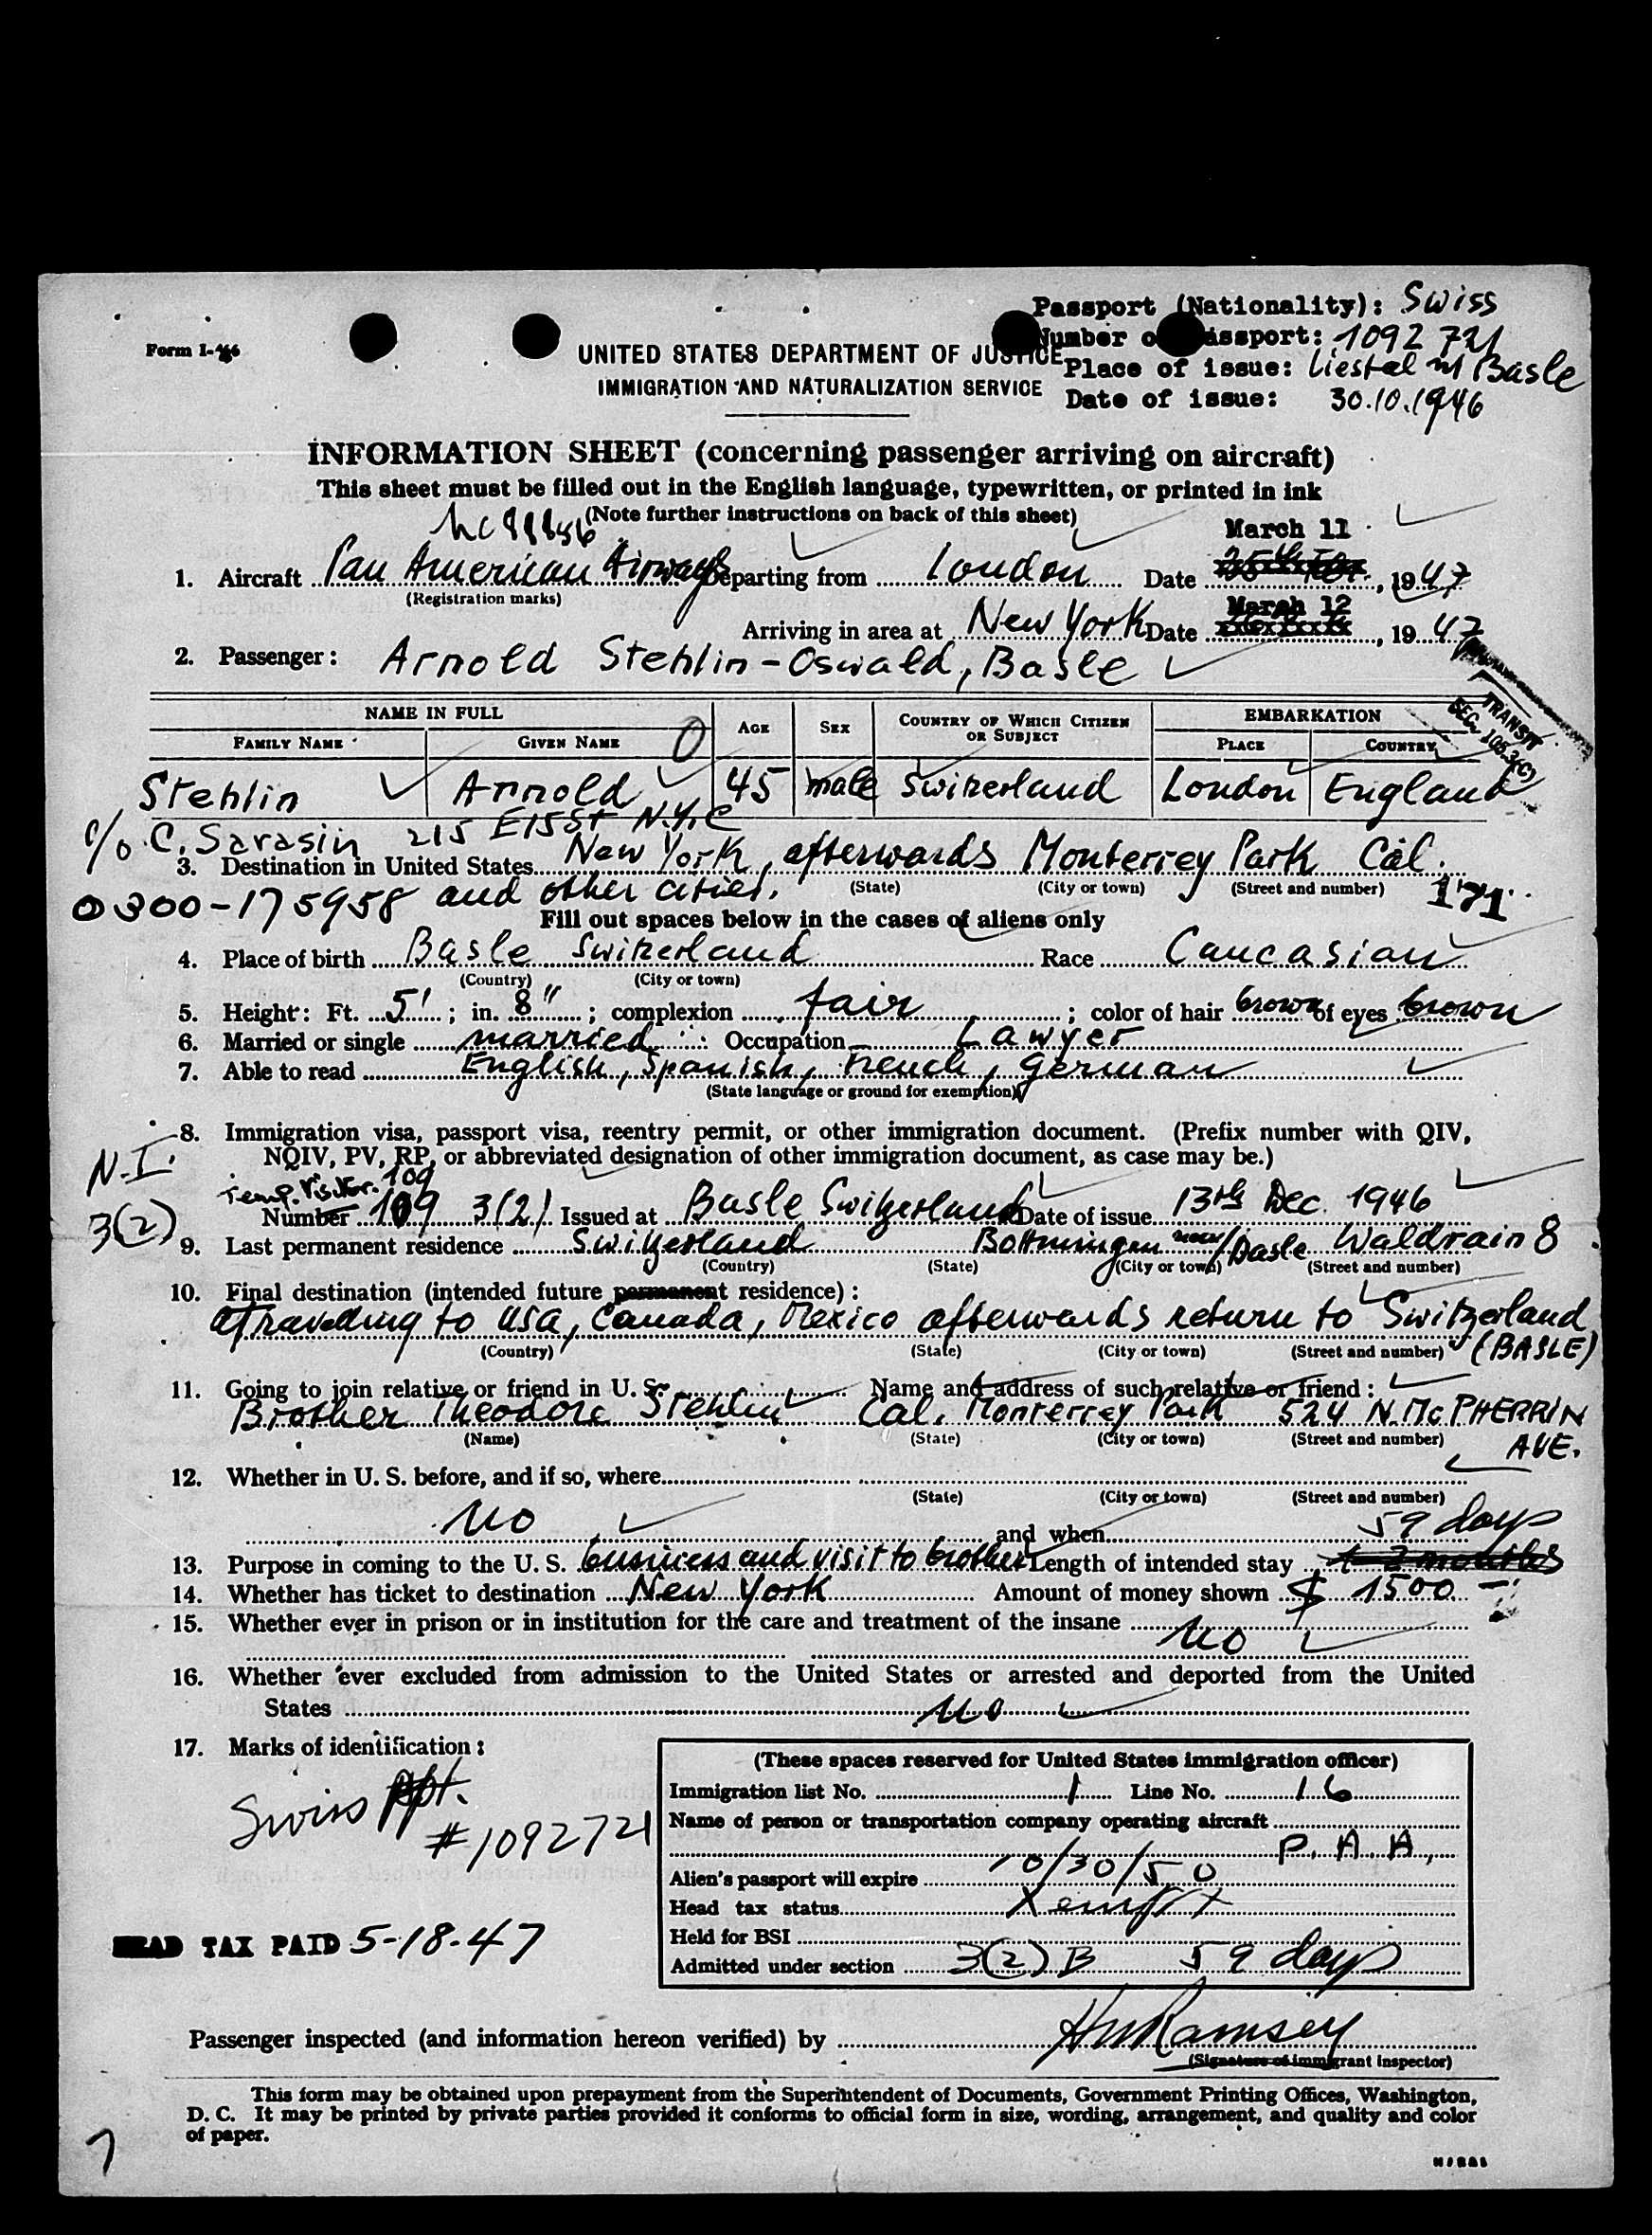 Passport (Nationality): Swiss
Number of Passport: 1092 721
Form I-466
UNITED STATES DEPARTMENT OF JUSTICE
Place of issue: Liestal nr Basle
IMMIGRATION AND NATURALIZATION SERVICE
Date of issue: 30.10.1946
INFORMATION SHEET (concerning passenger arriving on aircraft)
This sheet must be filled out in the English language, typewritten, or printed in ink
(Note further instructions on back of this sheet)
March 11
1. Aircraft Pan American Airways Departing from London Date 25th Febr., 1947
(Registration marks)
March 12
Arriving in area at New York Date , 1947
2. Passenger: Arnold Stehlin-Oswald, Basle
TRANSIT
SEC. 105.3(C)
NAME IN FULL AGE SEX COUNTRY OF WHICH CITIZEN OR SUBJECT EMBARKATION
FAMILY NAME GIVEN NAME 0 PLACE COUNTRY
Stehlin Arnold 45 male Switzerland London England
c/o C. Sarasin 215 E 15 St N.Y.C
3. Destination in United States New York, afterwards Monterrey Park Cal.
(State) (City or town) (Street and number)
0300-175958 and other cities. 171
Fill out spaces below in the cases of aliens only
4. Place of birth Basle Switzerland Race Caucasian
(Country) (City or town)
5. Height: Ft. 5' ; in. 8" ; complexion fair ; color of hair brown of eyes brown
6. Married or single married Occupation Lawyer
7. Able to read English, Spanish, French, German
(State language or ground for exemption)
8. Immigration visa, passport visa, reentry permit, or other immigration document. (Prefix number with QIV,
NQIV, PV, RP, or abbreviated designation of other immigration document, as case may be.)
N.I.
Temp. Visitor. 109
3(2)
Number 109 3(2) Issued at Basle Switzerland Date of issue 13th Dec. 1946
9. Last permanent residence Switzerland Bottmingen near/Basle Waldrain 8
(Country) (State) (City or town) (Street and number)
10. Final destination (intended future permanent residence):
Travelling to USA, Canada, Mexico afterwards return to Switzerland
(Country) (State) (City or town) (Street and number) (BASLE)
11. Going to join relative or friend in U. S. Name and address of such relative or friend:
Brother Theodore Stehlin Cal. Monterrey Park 524 N. Mc PHERRIN
(Name) (State) (City or town) (Street and number) AVE.
12. Whether in U. S. before, and if so, where
(State) (City or town) (Street and number)
no and when 59 days
13. Purpose in coming to the U. S. business and visit to brother Length of intended stay
14. Whether has ticket to destination New York Amount of money shown $ 1500.-
15. Whether ever in prison or in institution for the care and treatment of the insane
no
16. Whether ever excluded from admission to the United States or arrested and deported from the United
States no
17. Marks of identification:
Swiss Ppt.
#1092721
HEAD TAX PAID 5-18-47
(These spaces reserved for United States immigration officer)
Immigration list No. 1 Line No. 16
Name of person or transportation company operating aircraft
P. A. A.
Alien's passport will expire 10/30/50
Head tax status Xempt
Held for BSI
Admitted under section 3(2) B 59 days
Passenger inspected (and information hereon verified) by HM Ramsey
(Signature of immigrant inspector)
This form may be obtained upon prepayment from the Superintendent of Documents, Government Printing Offices, Washington,
D. C. It may be printed by private parties provided it conforms to official form in size, wording, arrangement, and quality and color
of paper.
7